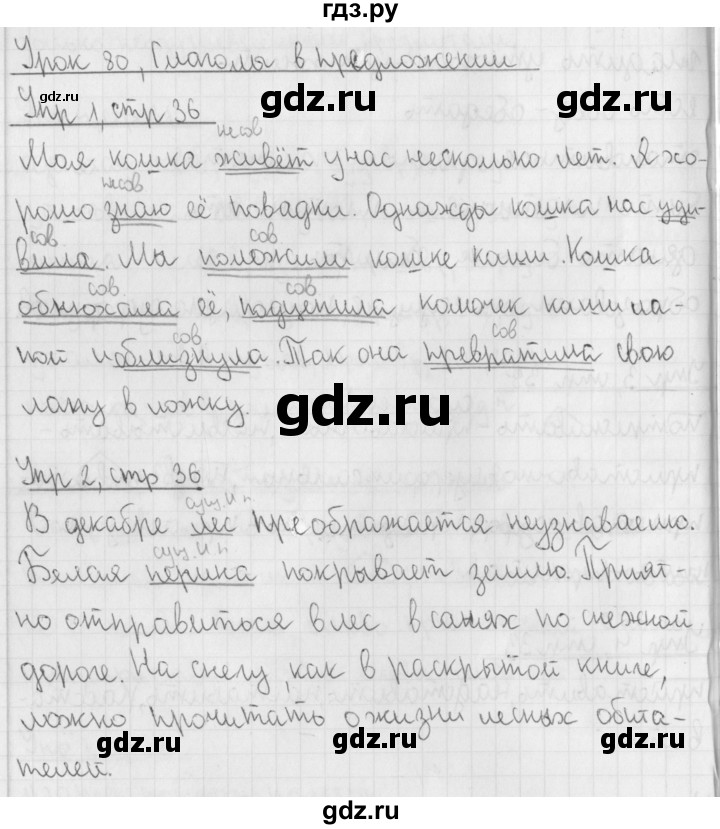 гдз.ру
Урок 80, Глаголы в предложении
gdz.ru gdz.ru gdz.ru
Упр 1, стр 36
несов
Моя кошка живёт у нас несколько лет. Я хо-
несов
рошо знаю её повадки. Однажды кошка нас уди-
сов сов
вила. Мы положили кошке каши. Кошка
сов сов
обнюхала её, подцепила комочек каши ла-
сов сов
пой и облизнула. Так она превратила свою
gdz.ru
лапу в ложку.
Упр 2, стр 36
сущ. И п
В декабре лес преображается неузнаваемо.
сущ. И п
Белая перина покрывает землю. Прият-
но отправиться в лес в санях по снежной
дороге. На снегу, как в раскрытой книге,
можно прочитать о жизни лесных обита-
gdz.ru gdz.ru gdz.ru
телей.
gdz.ru